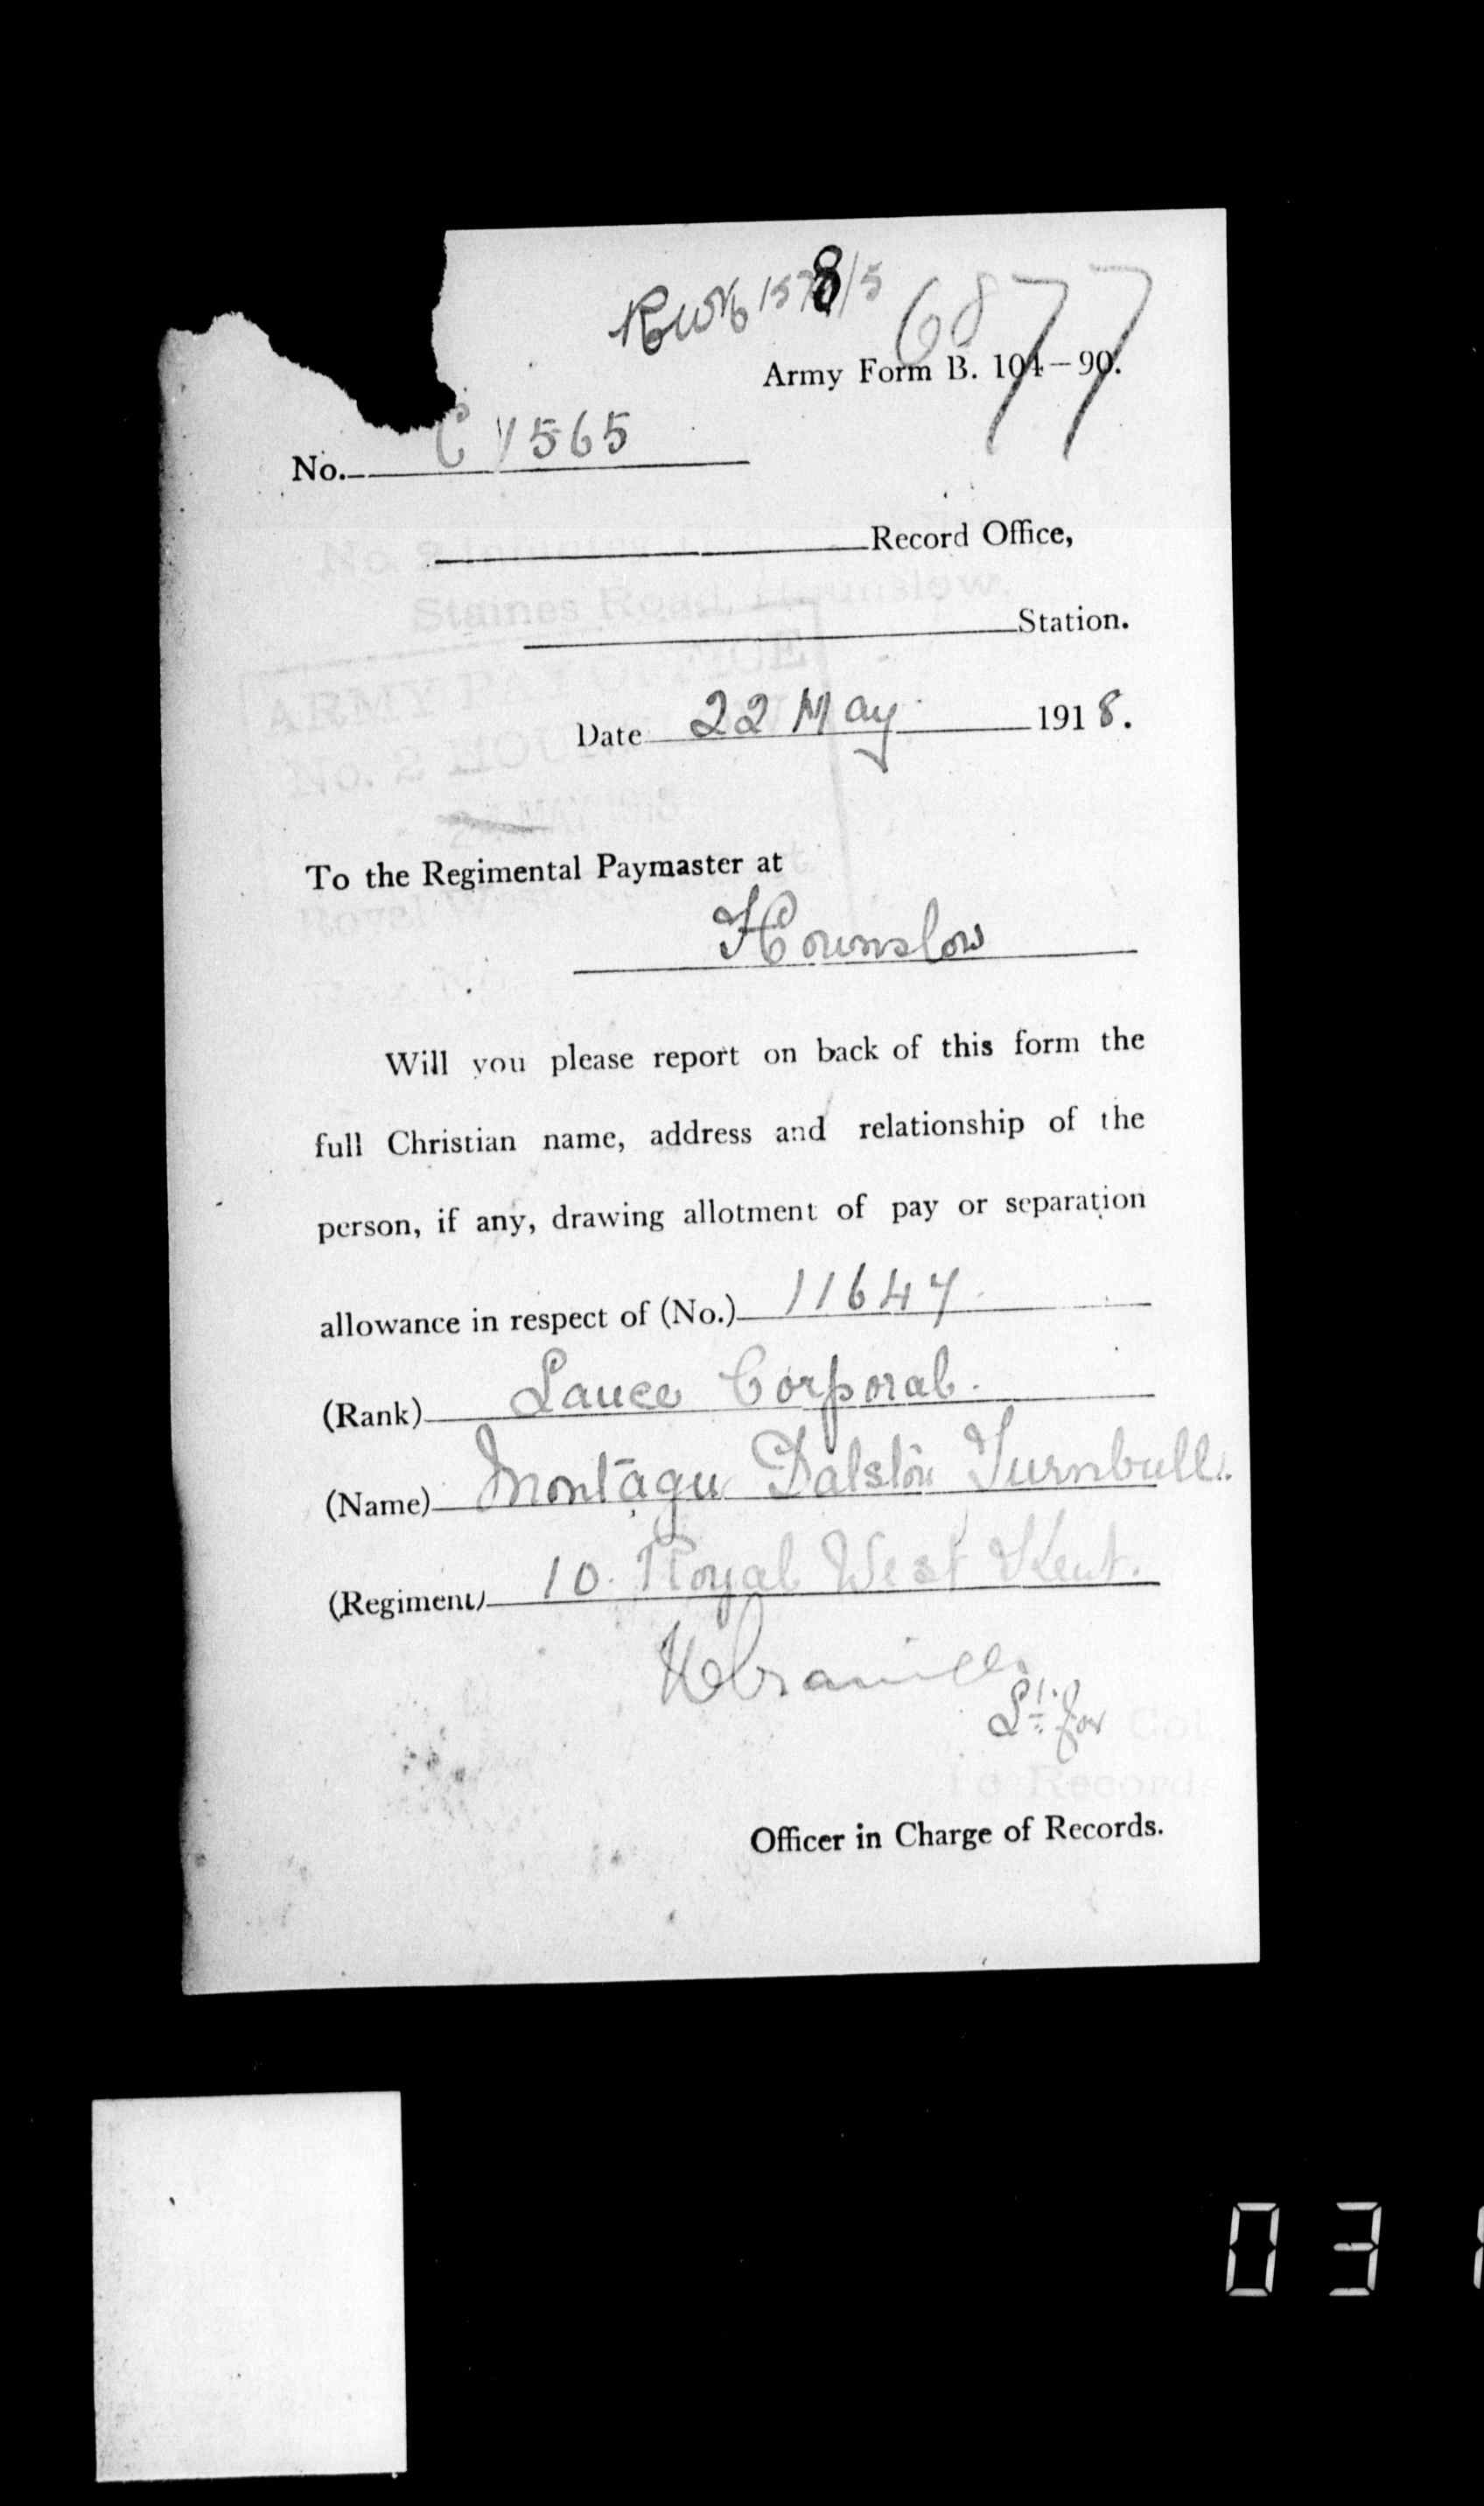 6877
Army Form B. 104—90.
No. C 1565
Record Office,
Staines Road, Hounslow.
Station.
ARMY PAY OFFICE
No. 2 HOUNSLOW
Date 22 May 1918.
MAY 1918
To the Regimental Paymaster at
Royal West
Hounslow
Will you please report on back of this form the
full Christian name, address and relationship of the
person, if any, drawing allotment of pay or separation
allowance in respect of (No.) 11647
(Rank) Lance Corporal.
(Name) Montagu Dalston Turnbull.
(Regiment) 10. Royal West Kent.
Lt. for Col.
i c Records
Officer in Charge of Records.
0 3 1